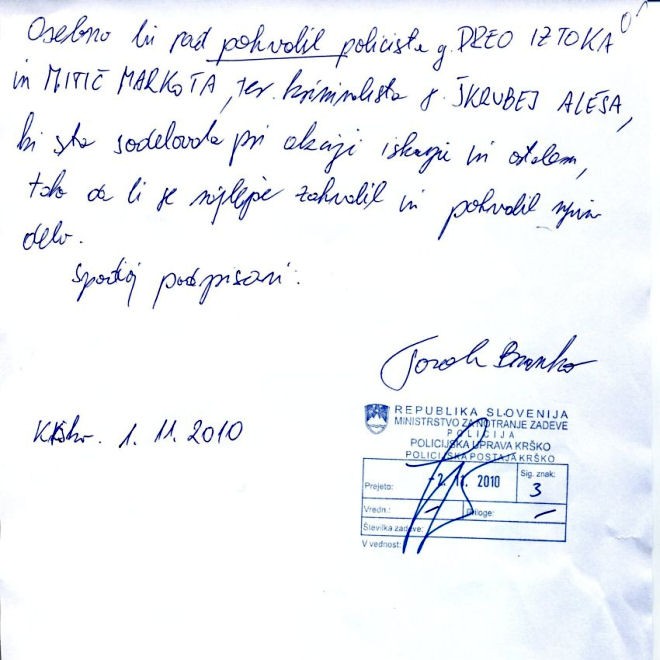 Osebno bi rad pohvalil policista g. DREO IZTOKA
in MITIĆ MARKOTA, ter kriminalista g. ŠKRUBEJ ALEŠA,
ki sta sodelovala pri akciji iskanje in ostalem,
tako da bi se najlepše zahvalil in pohvalil njuno
delo.
spodaj podpisani:
Branko
Krško. 1. 11. 2010
REPUBLIKA SLOVENIJA
MINISTRSTVO ZA NOTRANJE ZADEVE
POLICIJA
POLICIJSKA UPRAVA KRŠKO
POLICIJSKA POSTAJA KRŠKO
Prejeto: -2. 11. 2010
Sig. znak: 3
Vredn.: - Priloge: -
Številka zadeve:
V vednost: